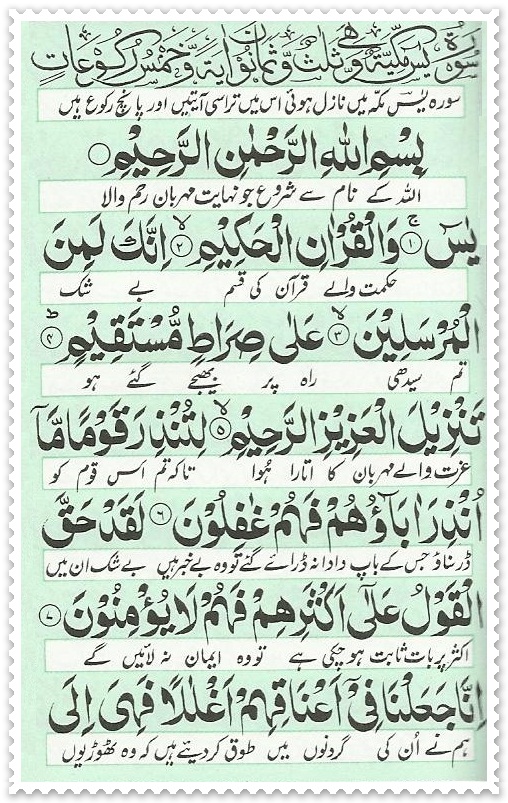 سُوْرَةُ يٰسٓ مَكِّيَّةٌ وَّهِيَ ثَلٰثٌ وَّثَمَانُوْنَ اٰيَةً وَّخَمْسُ رُكُوْعَاتٍ
سورہ یٰسٓ مکہ میں نازل ہوئی اس میں تراسی آیتیں اور پانچ رکوع ہیں
بِسْمِ اللّٰهِ الرَّحْمٰنِ الرَّحِيْمِ
اللہ کے نام سے شروع جو نہایت مہربان رحم والا
يٰسٓ ۚ﴿۱﴾ وَالْقُرْاٰنِ الْحَكِيْمِ ۙ﴿۲﴾ اِنَّكَ لَمِنَ
حکمت والے قرآن کی قسم بے شک
الْمُرْسَلِيْنَ ۙ﴿۳﴾ عَلٰى صِرَاطٍ مُّسْتَقِيْمٍ ؕ﴿۴﴾
تم سیدھی راہ پر بھیجے گئے ہو
تَنْزِيْلَ الْعَزِيْزِ الرَّحِيْمِ ۙ﴿۵﴾ لِتُنْذِرَ قَوْمًا مَّاۤ
عزت والے مہربان کا اتارا ہوا تاکہ تم اس قوم کو
اُنْذِرَ اٰبَآؤُهُمْ فَهُمْ غٰفِلُوْنَ ﴿۶﴾ لَقَدْ حَقَّ
ڈر سناؤ جس کے باپ دادا نہ ڈرائے گئے تو وہ بے خبر ہیں بے شک ان میں
الْقَوْلُ عَلٰۤى اَكْثَرِهِمْ فَهُمْ لَا يُؤْمِنُوْنَ ﴿۷﴾
اکثر پر بات ثابت ہو چکی ہے تو وہ ایمان نہ لائیں گے
اِنَّا جَعَلْنَا فِيْۤ اَعْنَاقِهِمْ اَغْلٰلًا فَهِيَ اِلَى
ہم نے اُن کی گردنوں میں طوق کر دیئے ہیں کہ وہ ٹھوڑیوں